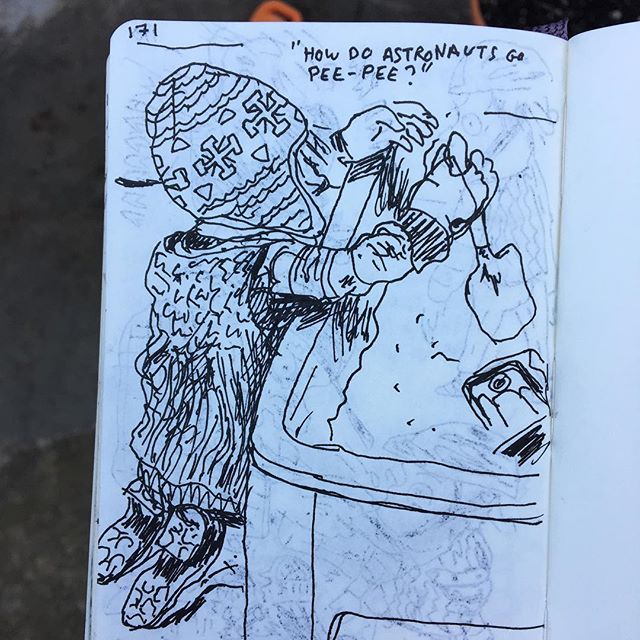 171
"HOW DO ASTRONAUTS GO
PEE-PEE?"